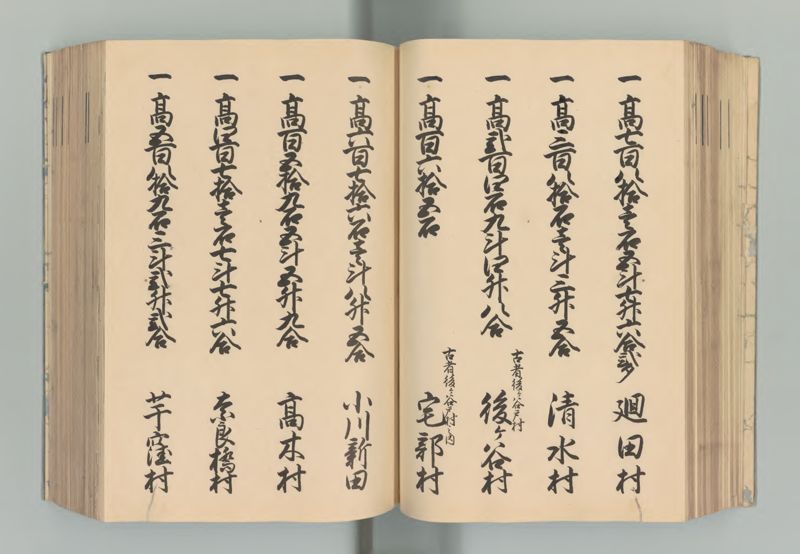 一 高七百八拾壱石五斗七升六合弐勺 廻田村
一 高三百八拾石壱斗三升五合 清水村
古者後ヶ谷戸村
一 高弐百四石九斗四升八合 後ヶ谷村
古者後ヶ谷戸村之内
一 高百六拾五石 宅部村
一 高六百七拾六石壱斗八升五合 小川新田
一 高百五拾九石五斗五升九合 高木村
一 高四百七拾壱石七斗七升六合 奈良橋村
一 高五百八拾九石三斗弐升弐合 芋窪村